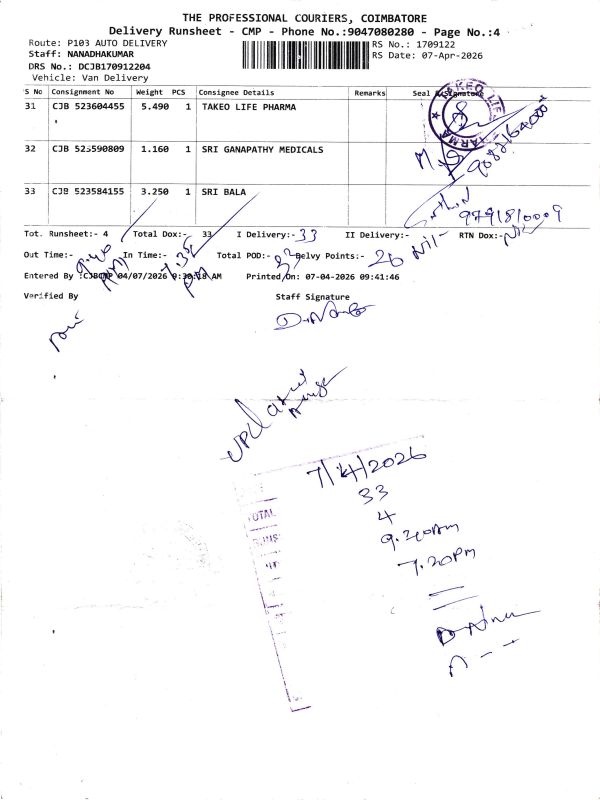 THE PROFESSIONAL COURIERS, COIMBATORE
Delivery Runsheet - CMP - Phone No.:9047080280 - Page No.:4
Route: P103 AUTO DELIVERY RS No.: 1709122
Staff: NANADHAKUMAR RS Date: 07-Apr-2026
DRS No.: DCJB170912204
Vehicle: Van Delivery
S No Consignment No Weight PCS Consignee Details Remarks Seal & Signature
31 CJB 523604455 5.490 1 TAKEO LIFE PHARMA
TAKEO LIFE PHARMA
32 CJB 523590809 1.160 1 SRI GANAPATHY MEDICALS
33 CJB 523584155 3.250 1 SRI BALA
9791810009
Tot. Runsheet:- 4 Total Dox:- 33 I Delivery:- 33 II Delivery:- Nil RTN Dox:- Nil
Out Time:- 9.40 In Time:- 7.35 PM Total POD:- 33 Delvy Points:- 26
Entered By :CJBCMP 04/07/2026 Printed On: 07-04-2026 09:41:46
Verified By Staff Signature
UPL
7/4/2026
TOTAL 33
4
9.20am
7.20pm